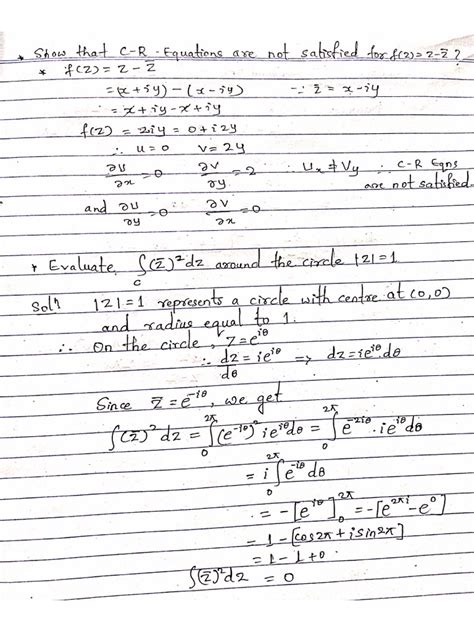 * Show that C-R Equations are not satisfied for f(z) = z - z̄ ?
* f(z) = z - z̄
= (x+iy) - (x-iy) ∵ z̄ = x-iy
= x+iy-x+iy
f(z) = 2iy = 0+i2y
∴ u=0 v=2y
∂u/∂x = 0 ∂v/∂y = 2 ∴ Ux ≠ Vy ∴ C-R Eqns are not satisfied.
and ∂u/∂y = 0 ∂v/∂x = 0
* Evaluate ∫_C (z̄)² dz around the circle |z|=1
Solⁿ |z|=1 represents a circle with centre at (0,0)
and radius equal to 1.
∴ On the circle, z = e^{iθ}
∴ dz/dθ = ie^{iθ} ⇒ dz = ie^{iθ} dθ
Since z̄ = e^{-iθ}, we get
∫(z̄)² dz = ∫_0^{2π} (e^{-iθ})² ie^{iθ} dθ = ∫_0^{2π} e^{-2iθ} . ie^{iθ} dθ
= i ∫_0^{2π} e^{-iθ} dθ
= -[e^{iθ}]_0^{2π} = -[e^{2πi} - e^0]
= 1 - [cos2π + i sin2π]
= 1 - 1 + 0
∫(z̄)² dz = 0